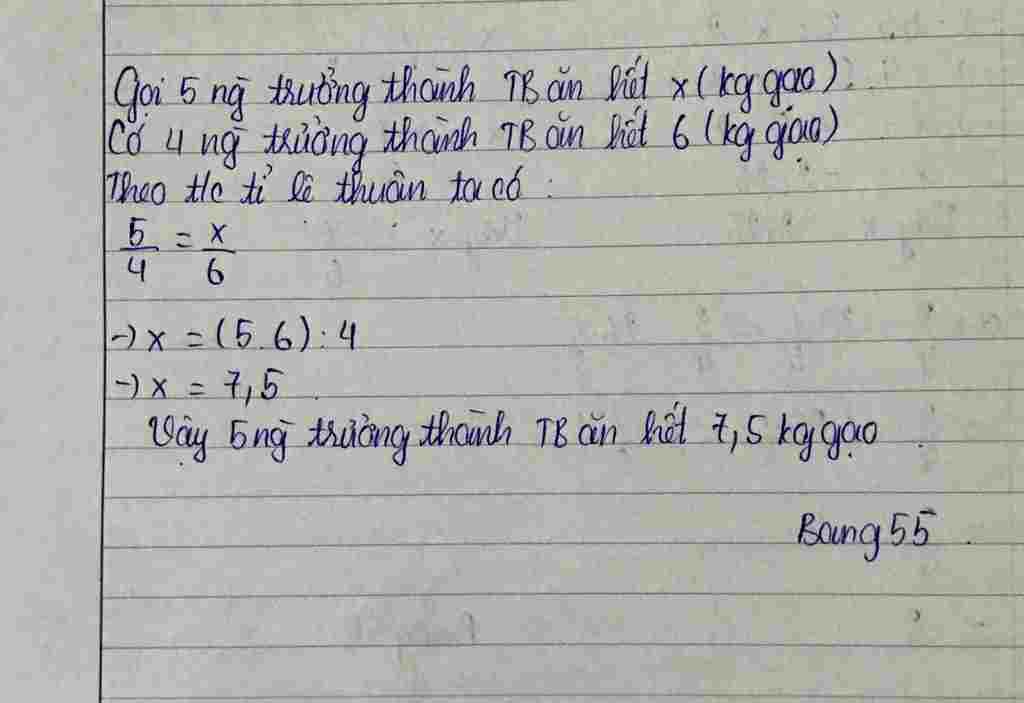 Gọi 5 ng trưởng thành TB ăn hết x (kg gạo).
Có 4 ng trưởng thành TB ăn hết 6 (kg giạo)
Theo t/c tỉ lệ thuận ta có :
5/4 = x/6
-) x = (5.6) : 4
-) x = 7,5
Vậy 5 ng trưởng thành TB ăn hết 7,5 kg gạo
Bang55